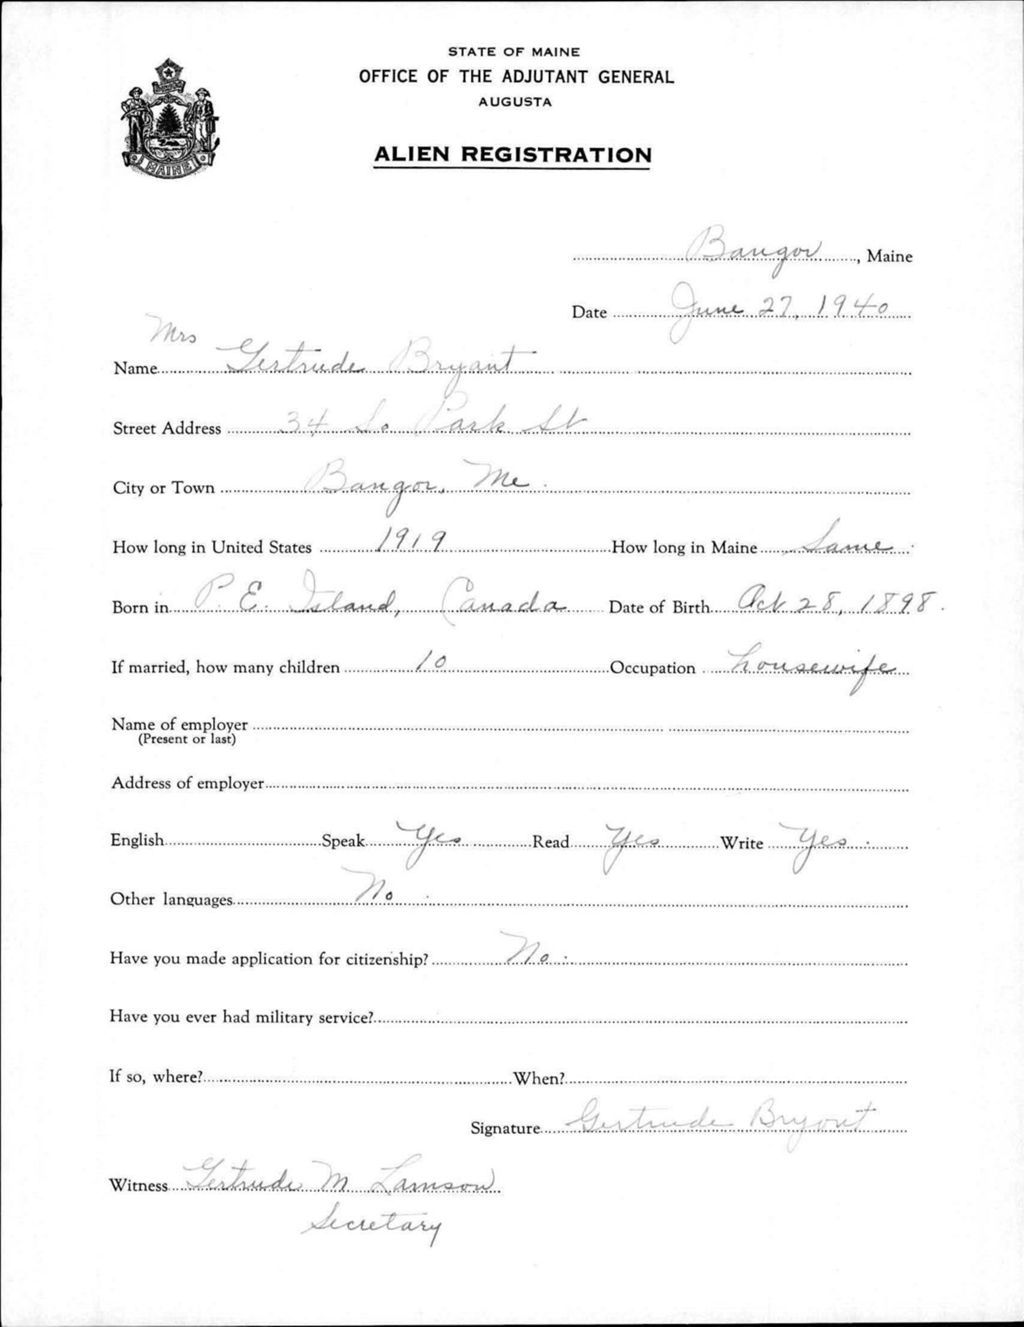 STATE OF MAINE
OFFICE OF THE ADJUTANT GENERAL
AUGUSTA
ALIEN REGISTRATION
MAINE
Bangor, Maine
Date June 27, 1940
Mrs
Name Gertrude Bryant
Street Address 34 So Park St
City or Town Bangor, Me.
How long in United States 1919 How long in Maine Same
Born in P. E. Island, Canada Date of Birth Oct 28, 1898.
If married, how many children 10 Occupation housewife
Name of employer
(Present or last)
Address of employer
English Speak Yes Read Yes Write Yes.
Other languages No.
Have you made application for citizenship? No.
Have you ever had military service?
If so, where? When?
Signature Gertrude Bryant
Witness Gertrude M Lamson
Secretary